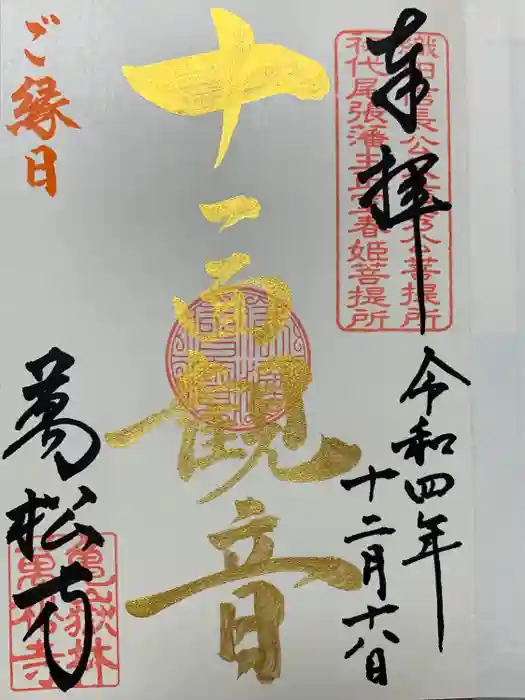 奉拝
織田信長公父信秀公菩提所
初代尾張藩主正室春姫菩提所
令和四年
十二月十八日
十一面観音
ご縁日
萬松寺
亀嶽林
萬松寺